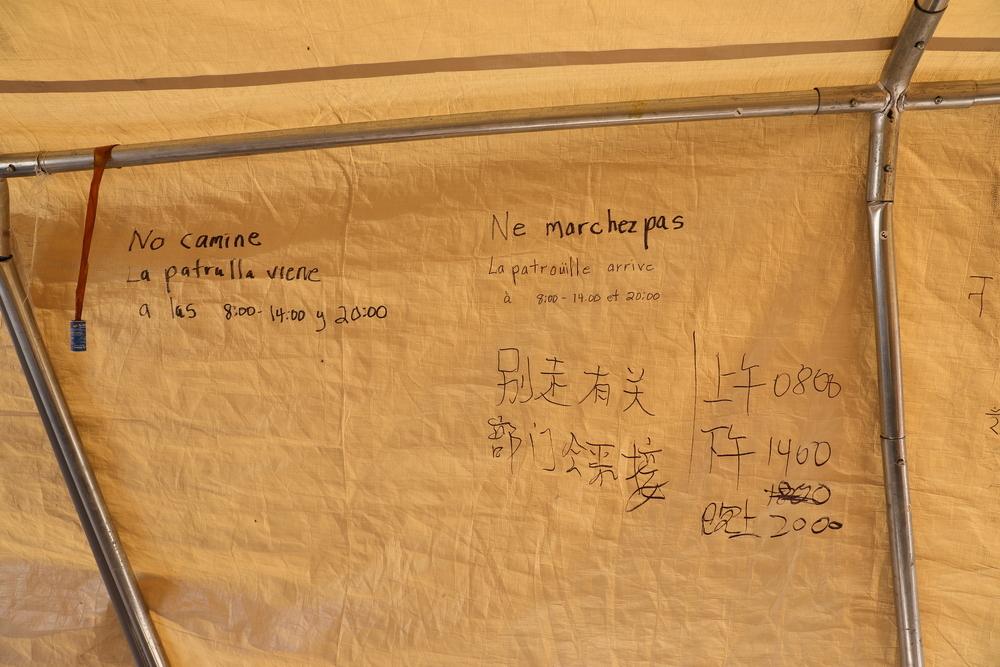 No camine
La patrulla viene
a las 8:00-14:00 y 20:00
Ne marchez pas
La patrouille arrive
à 8:00-14:00 et 20:00
别走有关
部门会来接
上午 0800
下午 1400
晚上 2000